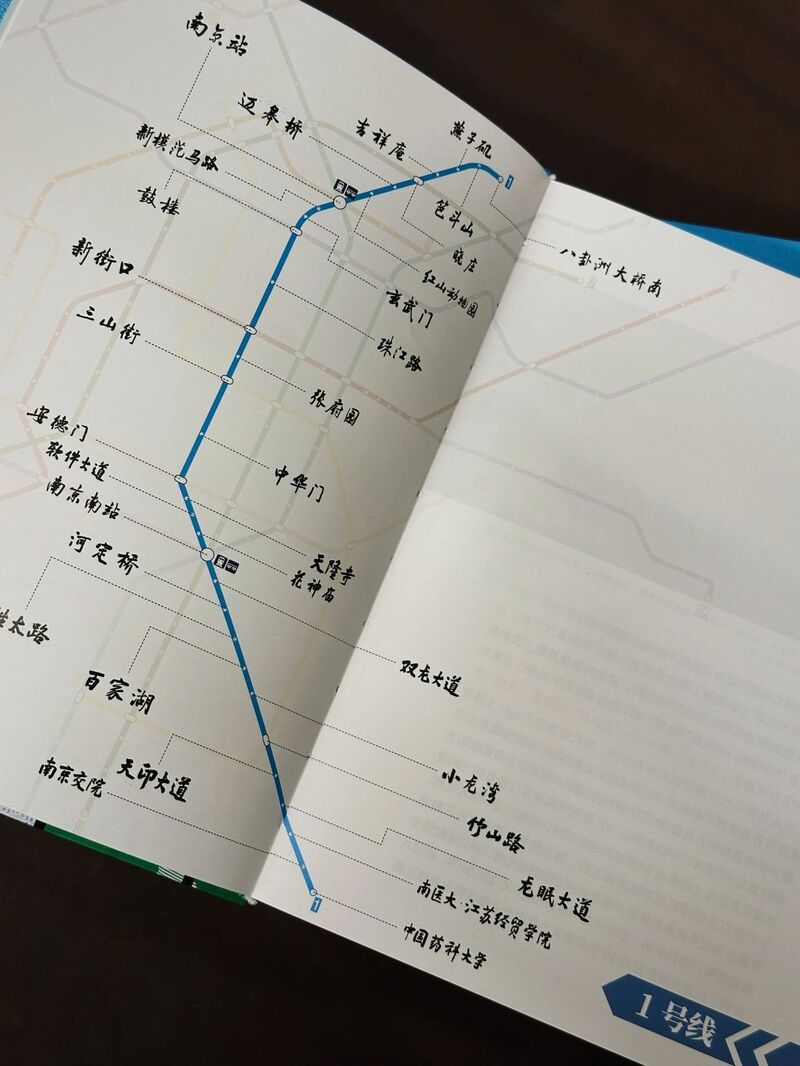 南京站
迈皋桥
吉祥庵
燕子矶
新模范马路
1
笆斗山
鼓楼
晓庄
八卦洲大桥南
红山动物园
新街口
玄武门
三山街
珠江路
张府园
安德门
软件大道
中华门
南京南站
河定桥
天隆寺
花神庙
胜太路
双龙大道
百家湖
天印大道
小龙湾
南京交院
竹山路
龙眠大道
南医大·江苏经贸学院
1
中国药科大学
1号线